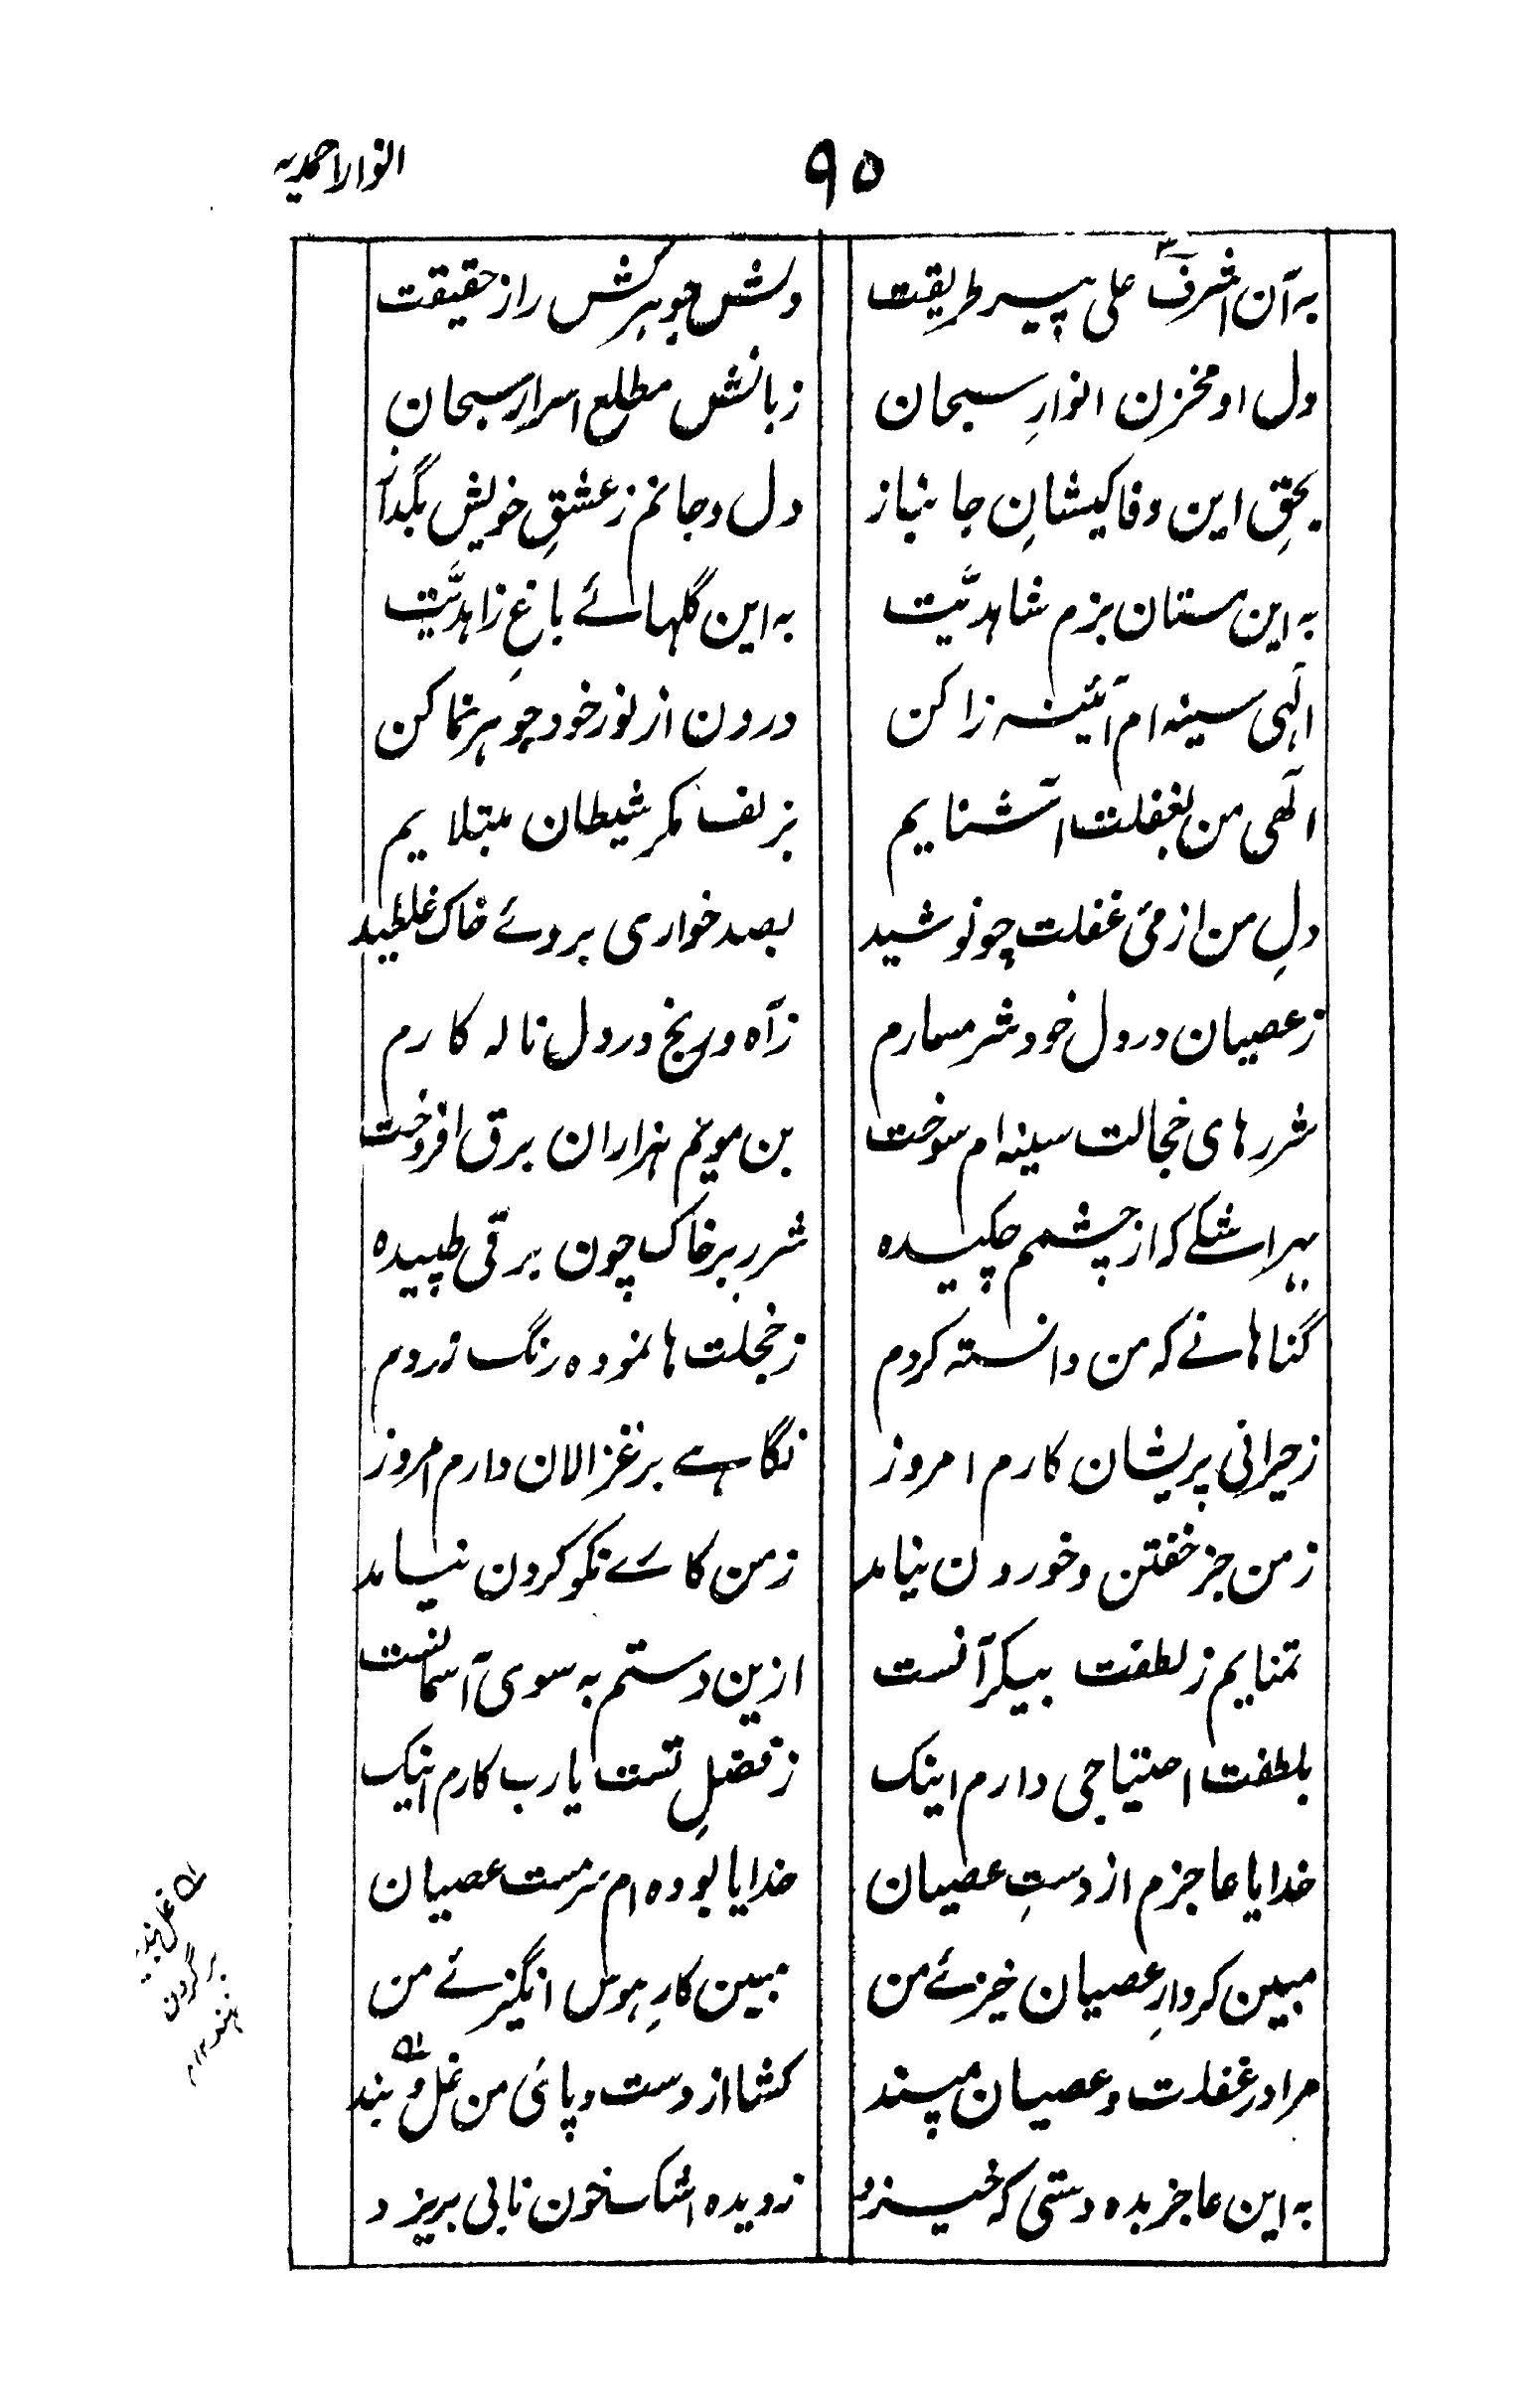 ۹۵
انوار احمدیہ
بہ آن اشرف علی پیر طریقت
دلش جوہرکش راز حقیقت
دل او مخزن انوارِ سبحان
زبانش مطلع اسرار سبحان
بحقِ این وفا کیشانِ جانباز
دل و جانم ز عشقِ خویش بگداز
بہ این مستان بزم شاہدیَّت
بہ این گلہائے باغِ زاہدیَّت
الٰہی سینہ ام آئینہ زا کن
درون از نور خود جوہر نما کن
الٰھی من بغفلت آشنایم
بزلف مکر شیطان مبتلایم
دلِ من از مئ غفلت چو نوشید
بصد خواری بروئے خاک غلطید
ز عصیان در دل خود شرمسارم
ز آہ و رنج در دل نالہ کارم
شرر های خجالت سینہ ام سوخت
بن مویم ہزاران برق افروخت
بہر اشکے کہ از چشمم چکیدہ
شرر بر خاک چون برقی طپیدہ
گناهانے کہ من دانستہ کردم
ز خجلت ها نمودہ رنگ زردم
ز حیرانی پریشان کارم امروز
نگاہے بر غزالان دارم امروز
ز من جز خفتن و خوردن نیامد
ز من کارے نکو کردن نیامد
تمنایم ز لطفت بیکرانست
ازین دستم بہ سوی آسمانست
بلطفت احتیاجی دارم اینک
ز فضلِ تست یارب کارم اینک
خدایا عاجزم از دستِ عصیان
خدایا بودہ ام سرمست عصیان
مبین کردارِ عصیان خیزئے من
مبین کارِ ہوس انگیزئے من
مرا در غفلت و عصیان مپسند
کشا از دست و پائ من غل و بند
بہ این عاجز بدہ دستی کہ خیزد
ز دیدہ اشک خون نابی بریزد
غل
بر گردن
نہند